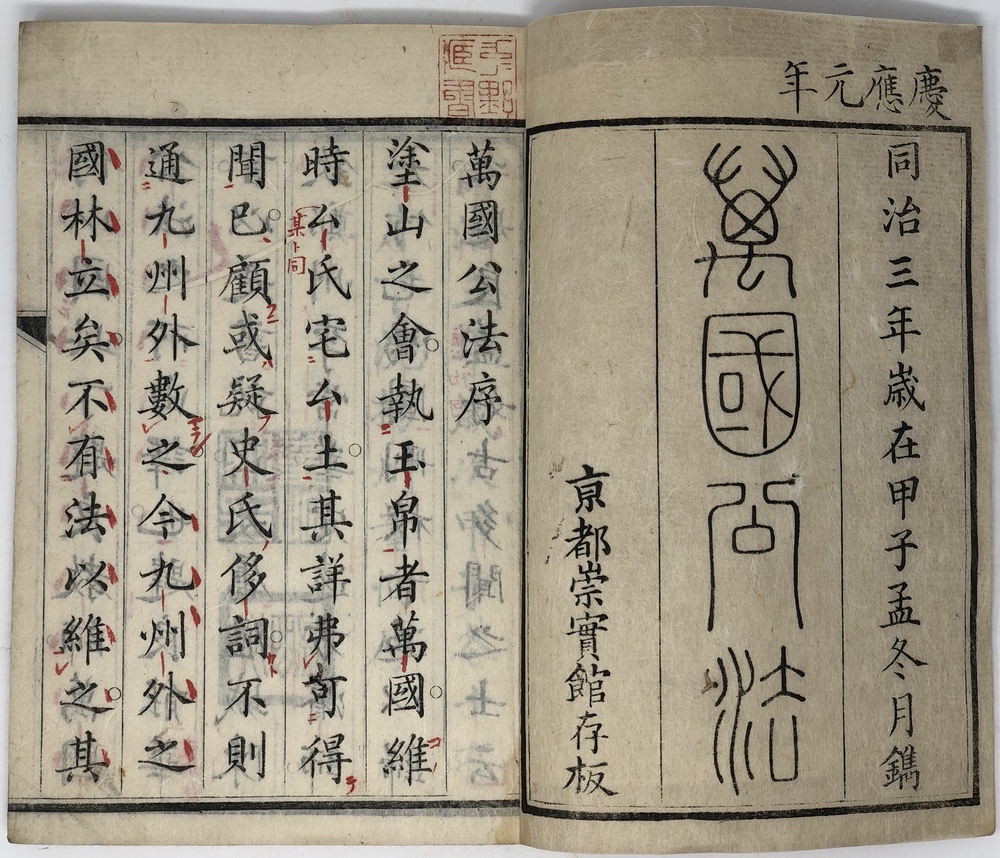 慶應元年
同治三年歳在甲子孟冬月鐫
萬國公法
亰都崇實館存板
萬國公法序
塗山之會執玉帛者萬國維
時厶氏宅厶土其詳弗可得
某ト同
聞已顧或疑史氏侈詞不則
通九州外數之今九州外之
國林立矣不有法以維之其